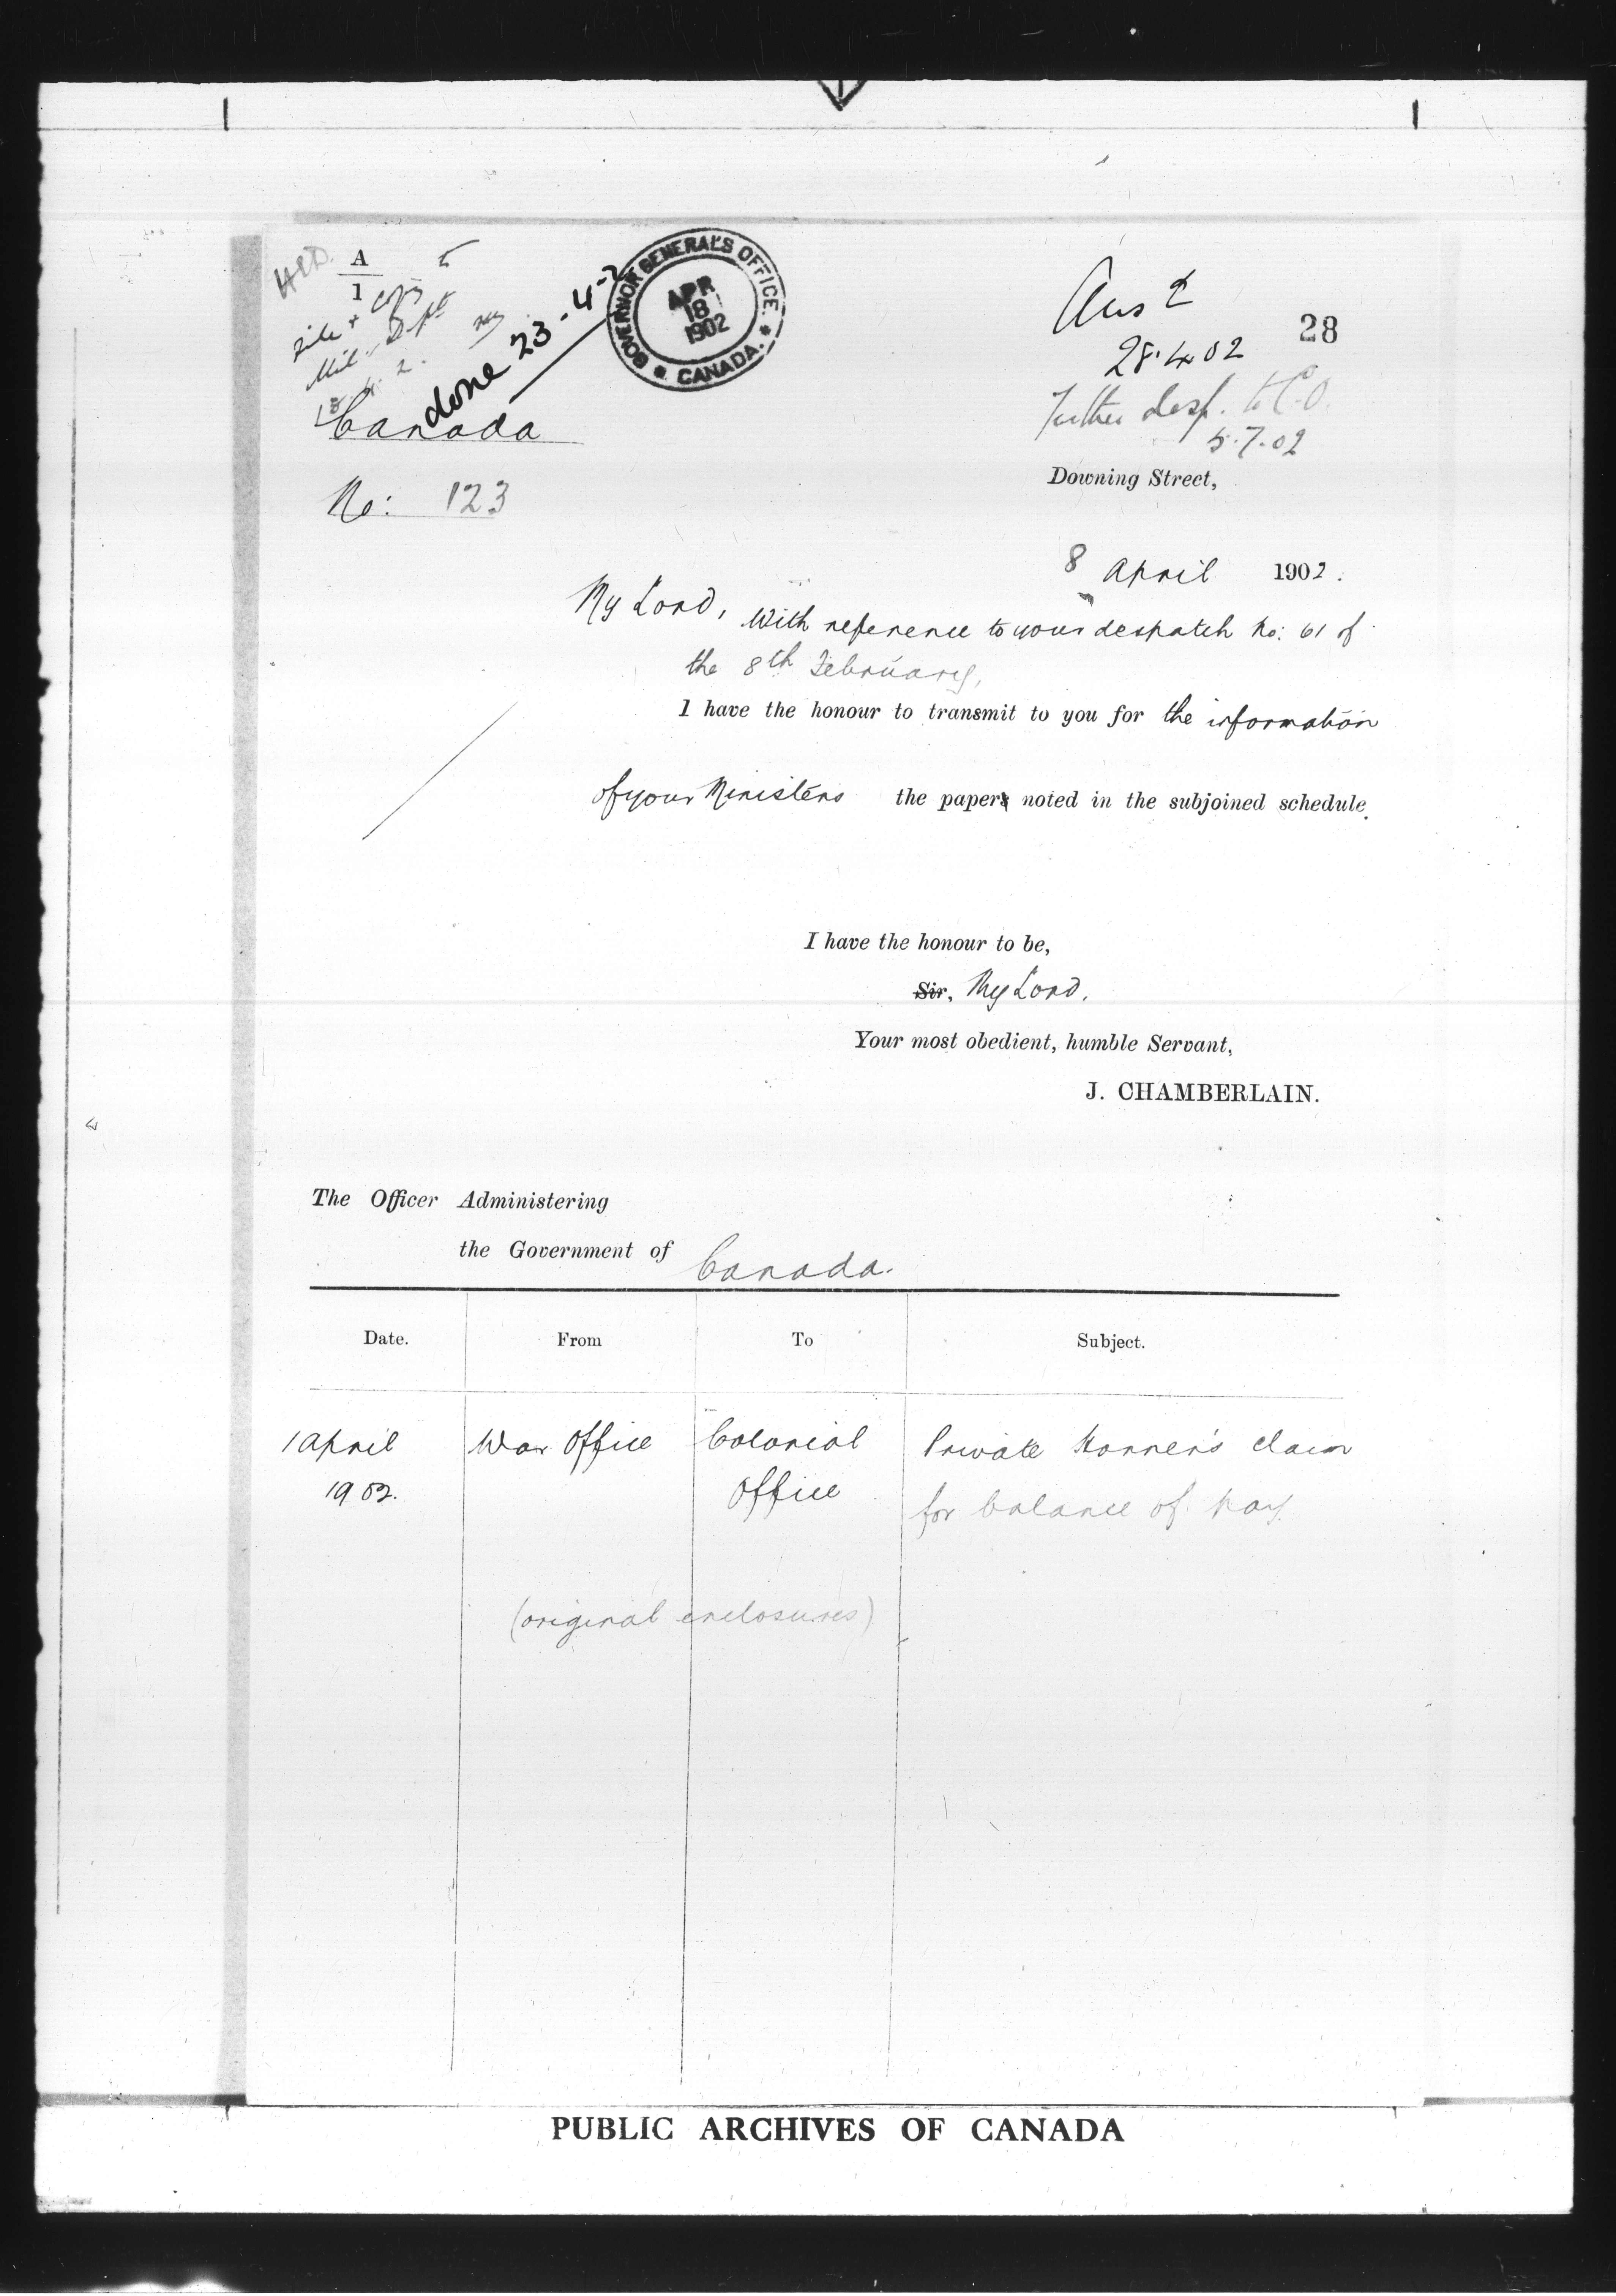 A
1
file + Copy
Mil. Dept
done 23-4-2
GOVERNOR GENERAL'S OFFICE.
APR
18
1902
* CANADA. *
Ansd
28.4.02
28
Further desp. to C.O.
5.7.02
Canada
No: 123
Downing Street,
8 April 1902.
My Lord,
With reference to your despatch No: 61 of
the 8th February,
I have the honour to transmit to you for the information
of your Ministers the paper noted in the subjoined schedule.
I have the honour to be,
Sir, My Lord,
Your most obedient, humble Servant,
J. CHAMBERLAIN.
The Officer Administering
the Government of Canada.
Date. From To Subject.
1 April War Office Colonial Private Horner's claim
1902. Office for balance of pay
(original enclosures)
PUBLIC ARCHIVES OF CANADA